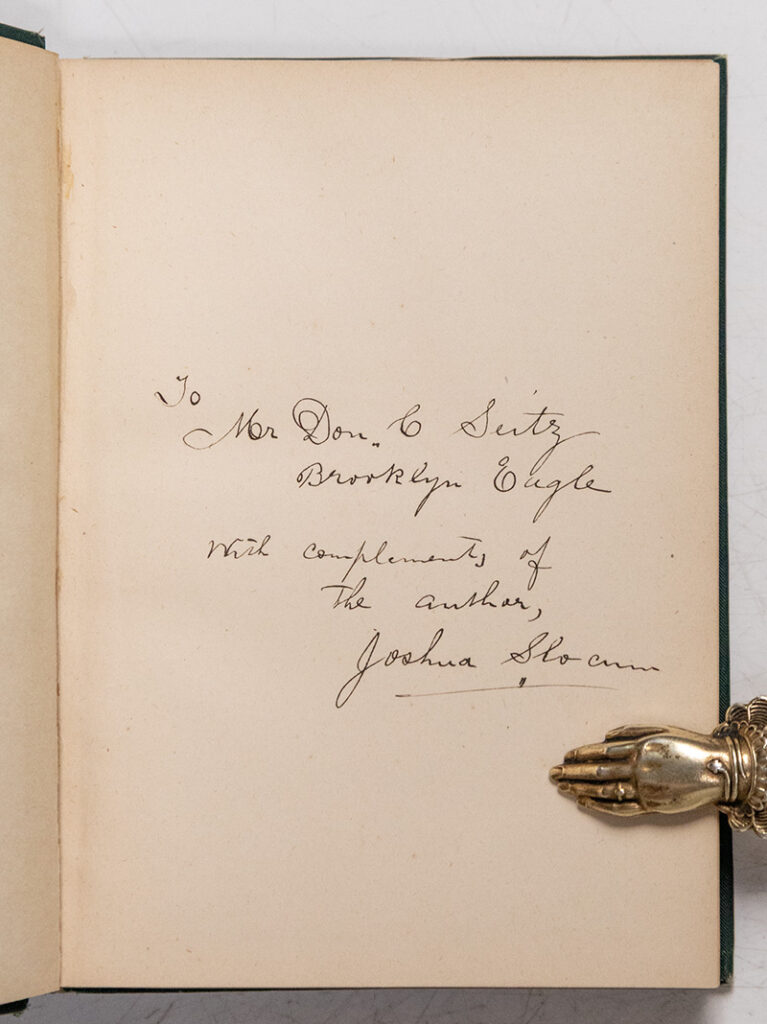 To
Mr Don. C Seitz
Brooklyn Eagle
With complements of
the author,
Joshua Slocum